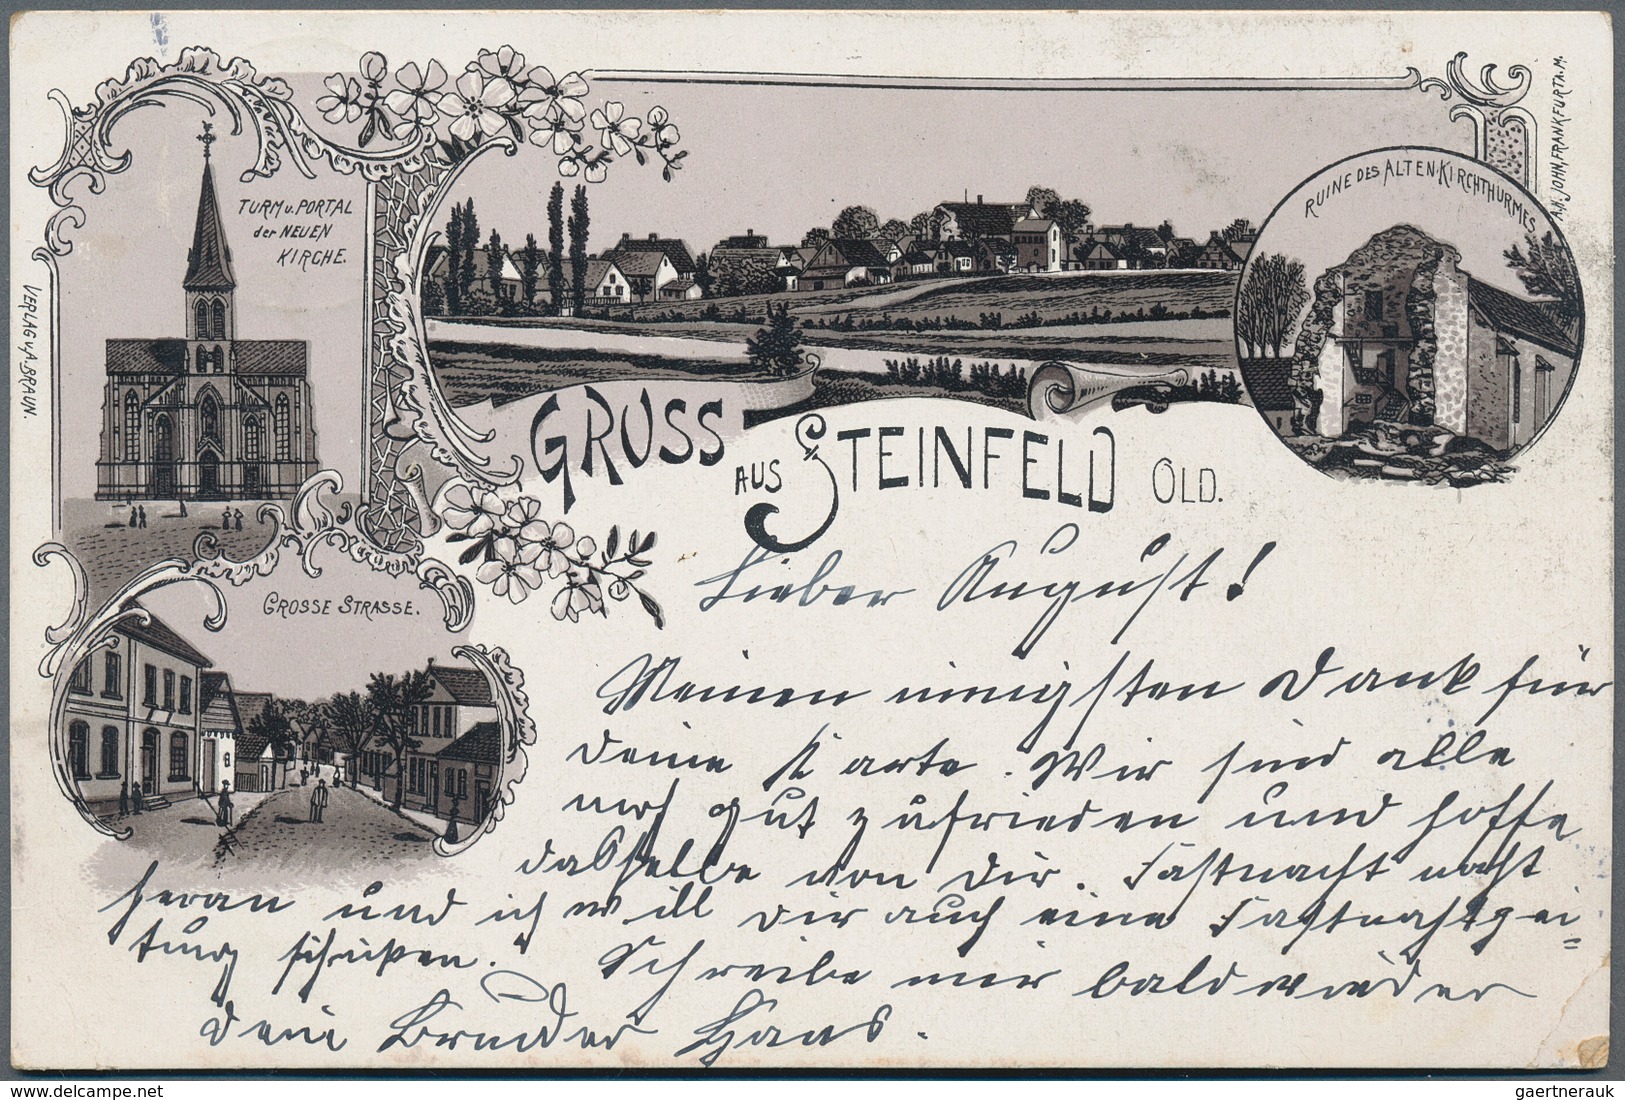 TURM u. PORTAL
der NEUEN
KIRCHE.
RUINE DES ALTEN KIRCHTHURMES.
A.H. JOHN, FRANKFURT A. M.
VERLAG v. A. BRAUN.
GRUSS
AUS STEINFELD OLD.
GROSSE STRASSE.
Lieber August!
Meinen innigsten Dank für
deine Karte. Wir sind alle
noch gut zufrieden und hoffe
dasselbe von Dir. Fastnacht naht
heran und ich will Dir auch eine Fastnachtzei=
tung schicken. Schreibe mir bald wieder
Dein Bruder Hans.
delcampe.net
gaertnerauk